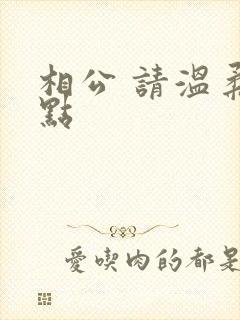 相公 請溫柔
點
愛喫肉的都是